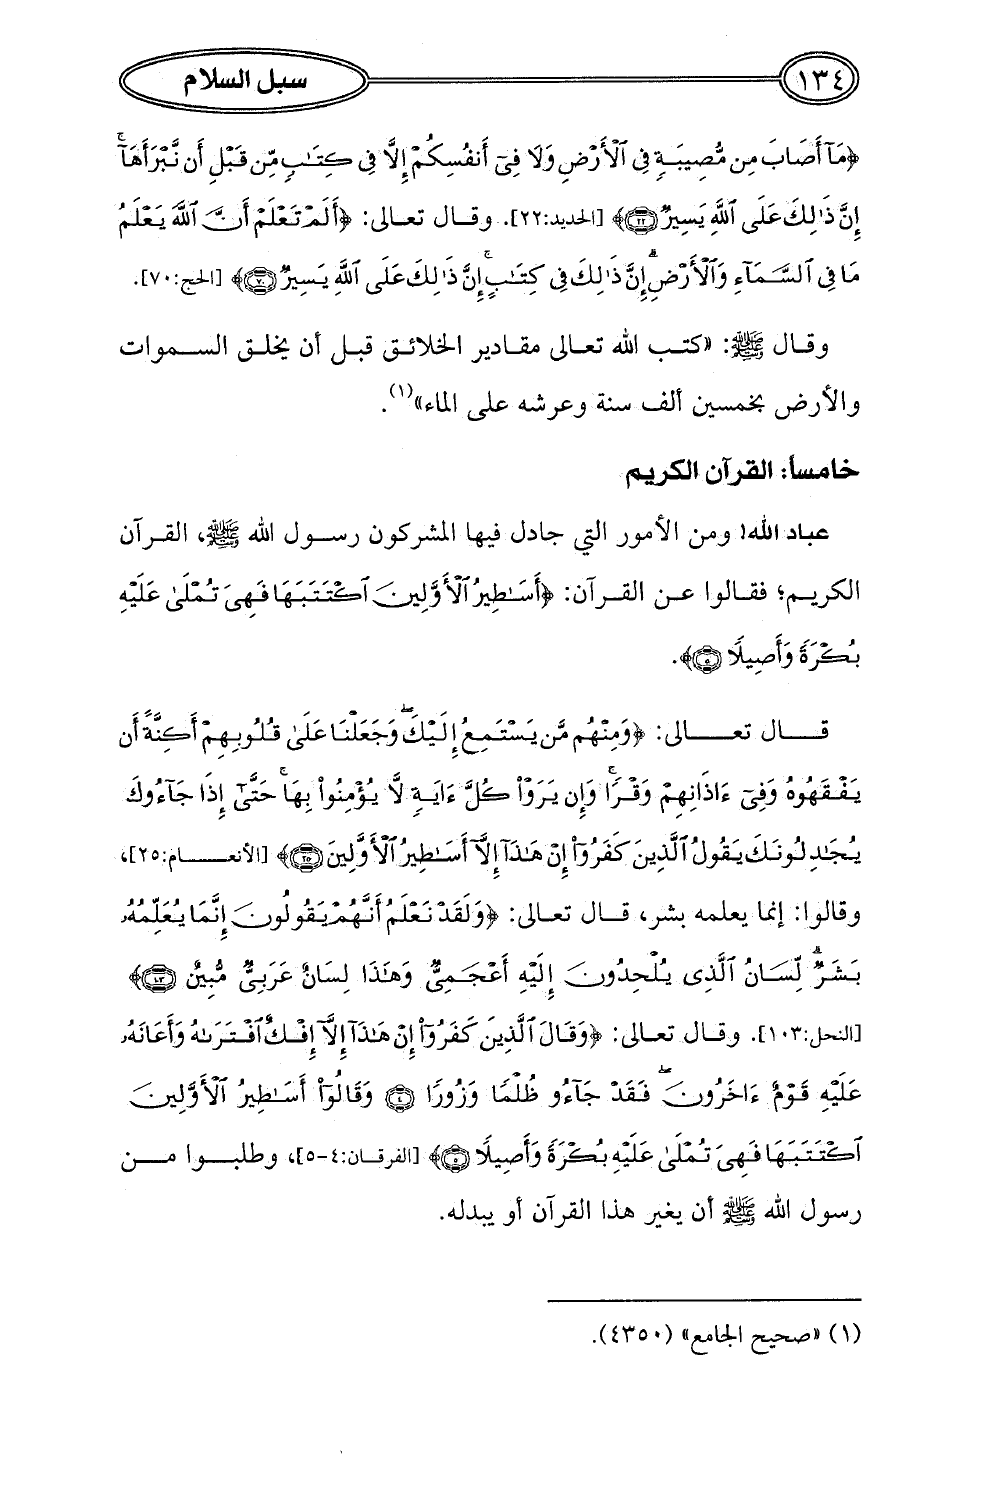 ١٣٤ سبل السلام
﴿مَآ أَصَابَ مِن مُّصِيبَةٍ فِى ٱلْأَرْضِ وَلَا فِىٓ أَنفُسِكُمْ إِلَّا فِى كِتَٰبٍ مِّن قَبْلِ أَن نَّبْرَأَهَآ ۚ
إِنَّ ذَٰلِكَ عَلَى ٱللَّهِ يَسِيرٌ ۝٢٢﴾ [الحديد:٢٢]. وقال تعالى: ﴿أَلَمْ تَعْلَمْ أَنَّ ٱللَّهَ يَعْلَمُ
مَا فِى ٱلسَّمَآءِ وَٱلْأَرْضِ ۗ إِنَّ ذَٰلِكَ فِى كِتَٰبٍ ۚ إِنَّ ذَٰلِكَ عَلَى ٱللَّهِ يَسِيرٌ ۝٧٠﴾ [الحج:٧٠].
وقال ﷺ: «كتب الله تعالى مقادير الخلائق قبل أن يخلق السموات
والأرض بخمسين ألف سنة وعرشه على الماء»(١).
خامساً: القرآن الكريم
عباد الله! ومن الأمور التي جادل فيها المشركون رسول الله ﷺ، القرآن
الكريم؛ فقالوا عن القرآن: ﴿أَسَٰطِيرُ ٱلْأَوَّلِينَ ٱكْتَتَبَهَا فَهِىَ تُمْلَىٰ عَلَيْهِ
بُكْرَةً وَأَصِيلًا ۝٥﴾.
قال تعالى: ﴿وَمِنْهُم مَّن يَسْتَمِعُ إِلَيْكَ ۖ وَجَعَلْنَا عَلَىٰ قُلُوبِهِمْ أَكِنَّةً أَن
يَفْقَهُوهُ وَفِىٓ ءَاذَانِهِمْ وَقْرًا ۚ وَإِن يَرَوْا۟ كُلَّ ءَايَةٍ لَّا يُؤْمِنُوا۟ بِهَا ۚ حَتَّىٰٓ إِذَا جَآءُوكَ
يُجَٰدِلُونَكَ يَقُولُ ٱلَّذِينَ كَفَرُوٓا۟ إِنْ هَٰذَآ إِلَّآ أَسَٰطِيرُ ٱلْأَوَّلِينَ ۝٢٥﴾ [الأنعام:٢٥]،
وقالوا: إنما يعلمه بشر، قال تعالى: ﴿وَلَقَدْ نَعْلَمُ أَنَّهُمْ يَقُولُونَ إِنَّمَا يُعَلِّمُهُۥ
بَشَرٌ ۗ لِّسَانُ ٱلَّذِى يُلْحِدُونَ إِلَيْهِ أَعْجَمِىٌّ وَهَٰذَا لِسَانٌ عَرَبِىٌّ مُّبِينٌ ۝١٠٣﴾
[النحل:١٠٣]. وقال تعالى: ﴿وَقَالَ ٱلَّذِينَ كَفَرُوٓا۟ إِنْ هَٰذَآ إِلَّآ إِفْكٌ ٱفْتَرَىٰهُ وَأَعَانَهُۥ
عَلَيْهِ قَوْمٌ ءَاخَرُونَ ۖ فَقَدْ جَآءُو ظُلْمًا وَزُورًا ۝٤ وَقَالُوٓا۟ أَسَٰطِيرُ ٱلْأَوَّلِينَ
ٱكْتَتَبَهَا فَهِىَ تُمْلَىٰ عَلَيْهِ بُكْرَةً وَأَصِيلًا ۝٥﴾ [الفرقان:٤-٥]، وطلبوا من
رسول الله ﷺ أن يغير هذا القرآن أو يبدله.
(١) «صحيح الجامع» (٤٣٥٠).